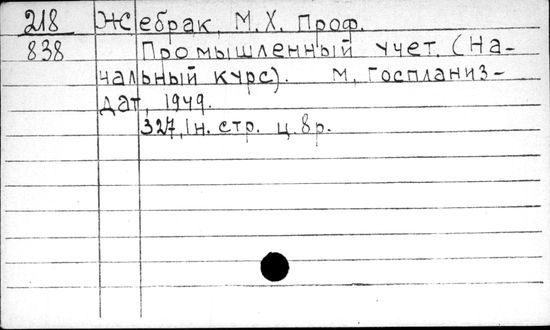 218 Жебрак, М.Х. Проф.
838 Промышленный учет. (На-
чальный курс). М, Госпланиз-
дат, 1949.
327,1н. стр. ц. 8р.